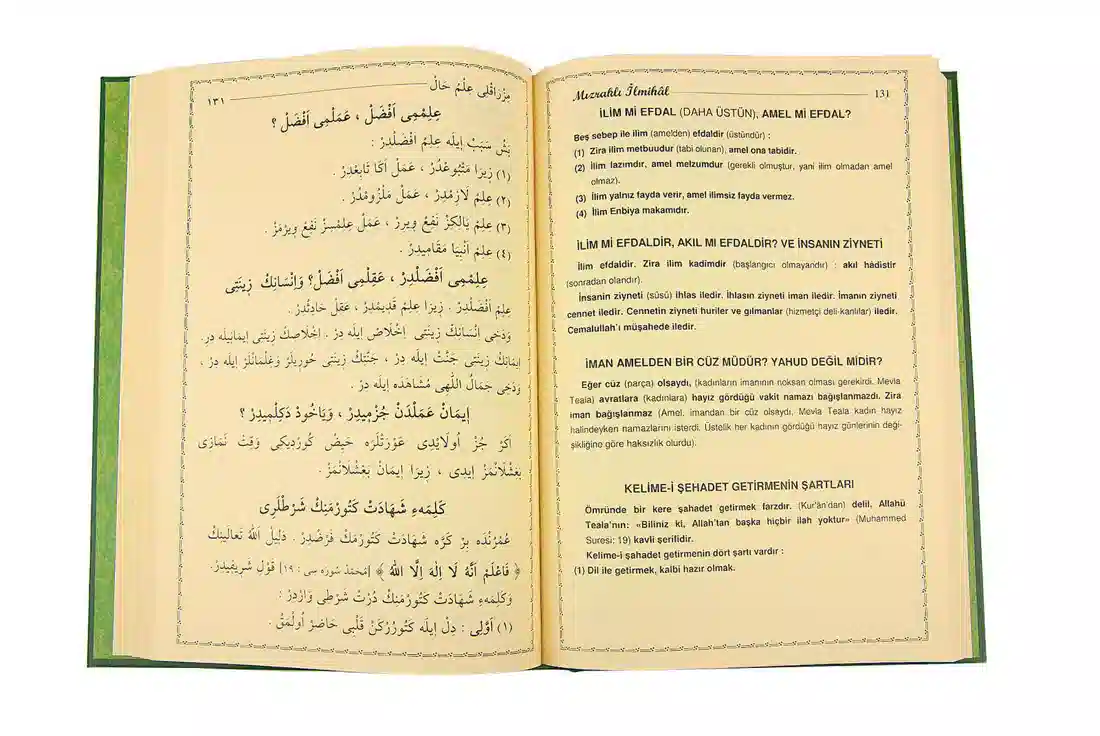 مِزْرَاقْلِى عِلْمِ حَالْ ١٣١
عِلِمْمِى اَفْضَلْ ، عَمَلْمِى اَفْضَلْ ؟
بَشْ سَبَبْ اِيلَه عِلِمْ اَفْضَلْدِرْ :
(١) زِيرَا مَتْبُوعْدُرْ ، عَمَلْ اَكَا تَابِعْدِرْ .
(٢) عِلِمْ لَازِمْدِرْ ، عَمَلْ مَلْزُومْدُرْ .
(٣) عِلِمْ يَالِكِزْ نَفِعْ وِيرِرْ ، عَمَلْ عِلِمْسِزْ نَفِعْ وِيرْمَزْ .
(٤) عِلِمْ اَنْبِيَا مَقَامِيدِرْ .
عِلِمْمِى اَفْضَلْدِرْ ، عَقِلْمِى اَفْضَلْ؟ وَاِنْسَانِكْ زِينَتِى
عِلِمْ اَفْضَلْدِرْ . زِيرَا عِلِمْ قَدِيمْدِرْ ، عَقِلْ حَادِثْدِرْ .
وَدَخِى اِنْسَانِكْ زِينَتِى اِخْلَاصْ اِيلَه دِرْ . اِخْلَاصِكْ زِينَتِى اِيمَانِيلَه دِر.
اِيمَانِكْ زِينَتِى جَنَّتْ اِيلَه دِرْ ، جَنَّتِكْ زِينَتِى حُورِيلَرْ وَغِلْمَانْلَرْ اِيلَه دِرْ ،
وَدَخِى جَمَالُ اللّٰهِى مُشَاهَدَه اِيلَه دِرْ .
اِيمَانْ عَمَلْدَنْ جُزْمِيدِرْ ، وَيَاخُودْ دَكِلْمِيدِرْ ؟
اَكَرْ جُزْ اُولَايْدِى عَوْرَتْلَرَه حَيِضْ كُورْدِيكِى وَقِتْ نَمَازِى
بَغِشْلَانْمَزْ اِيدِى ، زِيرَا اِيمَانْ بَغِشْلَانْمَزْ .
كَلِمَهءِ شَهَادَتْ كَتُورْمَنِكْ شَرْطْلَرِى
عُمْرِنْدَه بِرْ كَرَّه شَهَادَتْ كَتُورْمَكْ فَرْضْدِرْ . دَلِيلْ اَللّٰهُ تَعَالَينِكْ
﴿ فَاعْلَمْ اَنَّهُ لَا اِلٰهَ اِلَّا اللّٰهُ ﴾ [مُحَمَّدْ سُورَه سِى : ١٩] قَوْلِ شَرِيفِيدِرْ.
وَكَلِمَهءِ شَهَادَتْ كَتُورْمَنِكْ دُرْتْ شَرْطِى وَارْدِرْ :
(١) اَوَّلِى : دِلْ اِيلَه كَتُورُرْكَنْ قَلْبِى حَاضِرْ اُولْمَقْ .
Mızraklı İlmihâl 131
İLİM Mİ EFDAL (DAHA ÜSTÜN), AMEL Mİ EFDAL?
Beş sebep ile ilim (amelden) efdaldir (üstündür) :
(1) Zira ilim metbuudur (tabi olunan), amel ona tabidir.
(2) İlim lazımdır, amel melzumdur (gerekli olmuştur, yani ilim olmadan amel
olmaz).
(3) İlim yalnız fayda verir, amel ilimsiz fayda vermez.
(4) İlim Enbiya makamıdır.
İLİM Mİ EFDALDİR, AKIL MI EFDALDİR? VE İNSANIN ZİYNETİ
İlim efdaldir. Zira ilim kadimdir (başlangıcı olmayandır) : akıl hâdistir
(sonradan olandır).
İnsanin ziyneti (süsü) ihlas iledir. İhlasın ziyneti iman iledir. İmanın ziyneti
cennet iledir. Cennetin ziyneti huriler ve gılmanlar (hizmetçi deli-kanlılar) iledir.
Cemalullah'ı müşahede iledir.
İMAN AMELDEN BİR CÜZ MÜDÜR? YAHUD DEĞİL MİDİR?
Eğer cüz (parça) olsaydı, (kadınların imanının noksan olması gerekirdi. Mevla
Teala) avratlara (kadınlara) hayız gördüğü vakit namazı bağışlanmazdı. Zira
iman bağışlanmaz (Amel, imandan bir cüz olsaydı, Mevla Teala kadın hayız
halindeyken namazlarını isterdi. Üstelik her kadının gördüğü hayız günlerinin deği-
şikliğine göre haksızlık olurdu).
KELİME-İ ŞEHADET GETİRMENİN ŞARTLARI
Ömründe bir kere şahadet getirmek farzdır. (Kur'ân'dan) delil, Allahü
Teala'nın: «Biliniz ki, Allah'tan başka hiçbir ilah yoktur» (Muhammed
Suresi: 19) kavli şerifidir.
Kelime-i şahadet getirmenin dört şartı vardır :
(1) Dil ile getirmek, kalbi hazır olmak.